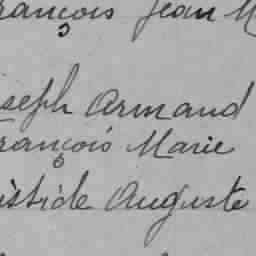 rançois Jean M
seph Armand
rançois Marie
istide Auguste